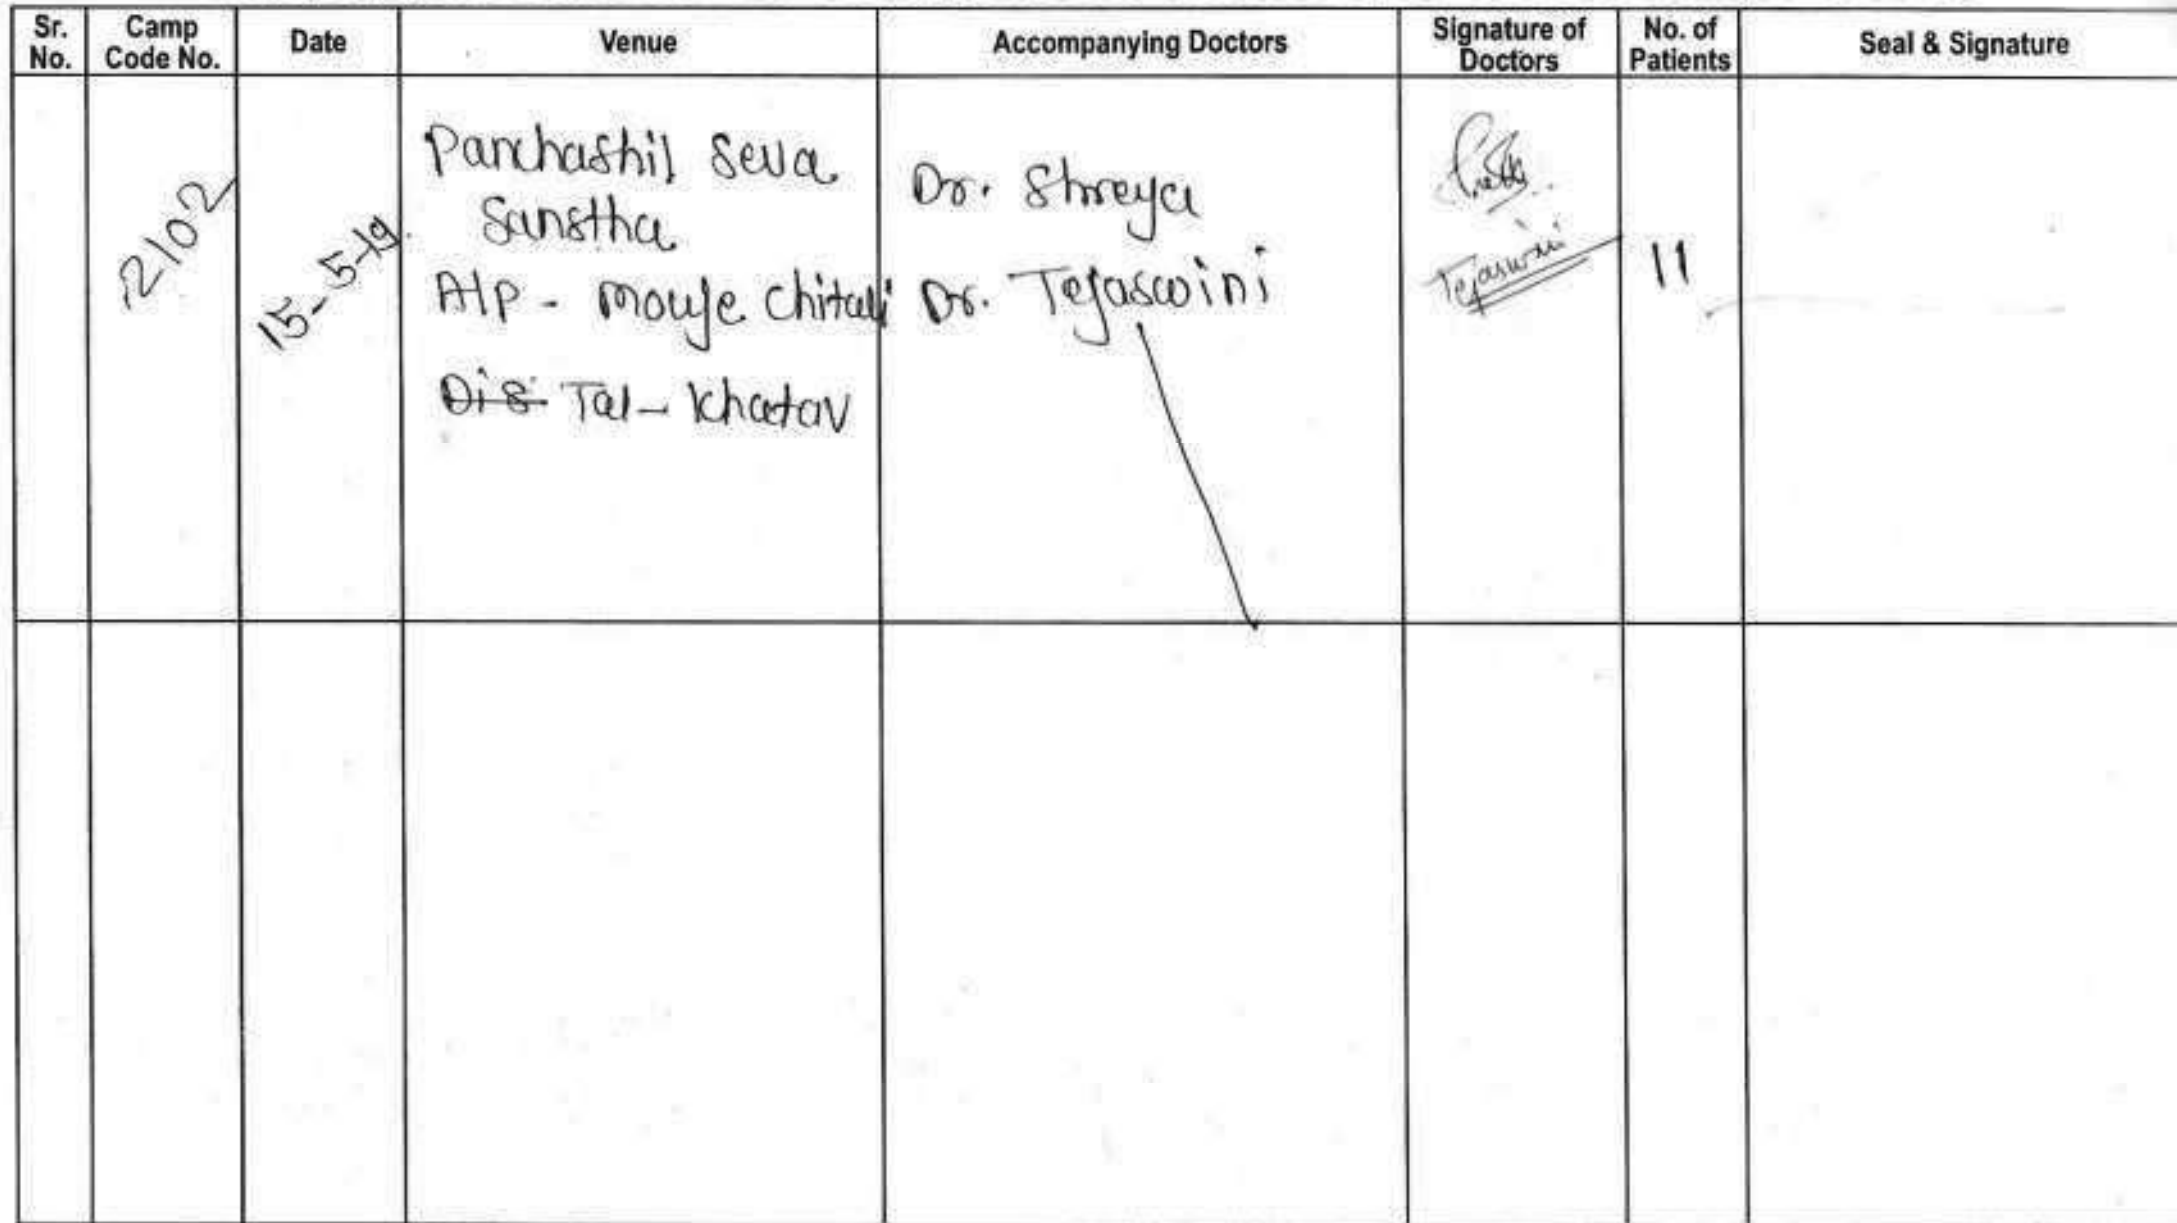 Sr. No. Camp Code No. Date Venue Accompanying Doctors Signature of Doctors No. of Patients Seal & Signature
Panchashil Seva
Sanstha
A/p - Mouje Chitali
Dis Tal - Khatav
2102
15-5-19.
Dr. Shreya
Dr. Tejaswini
Tejaswini
11